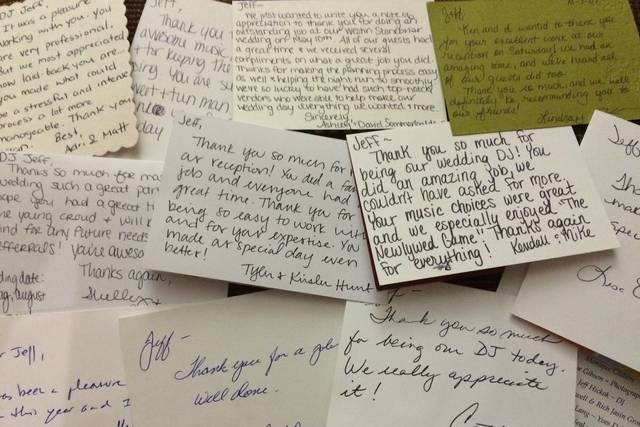 DJ Jeff,
It was a pleasure
working with you. You
are very professional.
but we most appreciated
how laid-back you are.
You made what could
be a stressful and intense
process a lot more
manageable. Thank you
Best,
Adri & Matt
Jeff,
Thank you
awesome music
+ for keeping the
You are su
fun man
day
Jeff-
We just wanted to write you a note of
appreciation to thank you for doing an
outstanding job at our Westin Stonebriar
wedding on May 16th. All of our guests had
a great time & we received several
compliments on what a great job you did.
Thanks for making the planning process easy
as well as helping the night run so smoothly.
We're so lucky to have had such top-notch
vendors who were able to help make our
wedding day everything we wanted & more.
Sincerely,
Ashley & David
Jeff,
Ken and I wanted to thank you
for your excellent work at our
reception on Saturday! We had an
amazing time, and we've heard all
of our guests did too.
Thank you so much, and we will
definitely be recommending you to
our friends!
Lindsay
DJ Jeff,
Thanks so much for ma
wedding such a great par
hope you had a great ti
the young crowd + will k
mind for any future needs
referrals! You're aweso
Thanks again,
wedding date:
august
Jeff,
Thank you so much for
our reception! You did a fan
job and everyone had
great time. Thank you for
being so easy to work with
and for your expertise. You
made our special day even
better!
Tyler & Kirsten Hunt
Jeff~
Thank you so much for
being our wedding DJ! You
did an amazing job, we
couldn't have asked for more.
Your music choices were great
and we especially enjoyed "The
Newlywed Game". Thanks again
for everything!
Kendall & Mike
Jeff
Than
mak
spec
Jeff,
been a pleasure
this year and I
Jeff-
Thank you for a job
well done.
Thank you so much
for being our DJ today.
We really appreciate
it!
Gibson - Photograp
Jeff Hichak - DJ